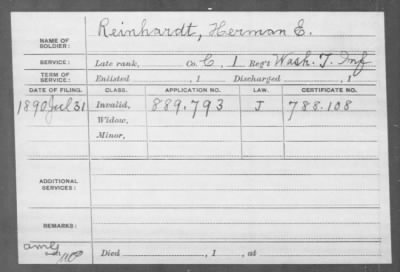 NAME OF SOLDIER: Reinhardt, Herman E.
SERVICE: Late rank, Co. C, 1 Reg't Wash. T. Inf
TERM OF SERVICE: Enlisted , 1 Discharged , 1
DATE OF FILING. CLASS. APPLICATION NO. LAW. CERTIFICATE NO.
1890 Jul 31 Invalid, 889.793 J 788.108
Widow,
Minor,
ADDITIONAL SERVICES:
REMARKS:
Died , 1 , at